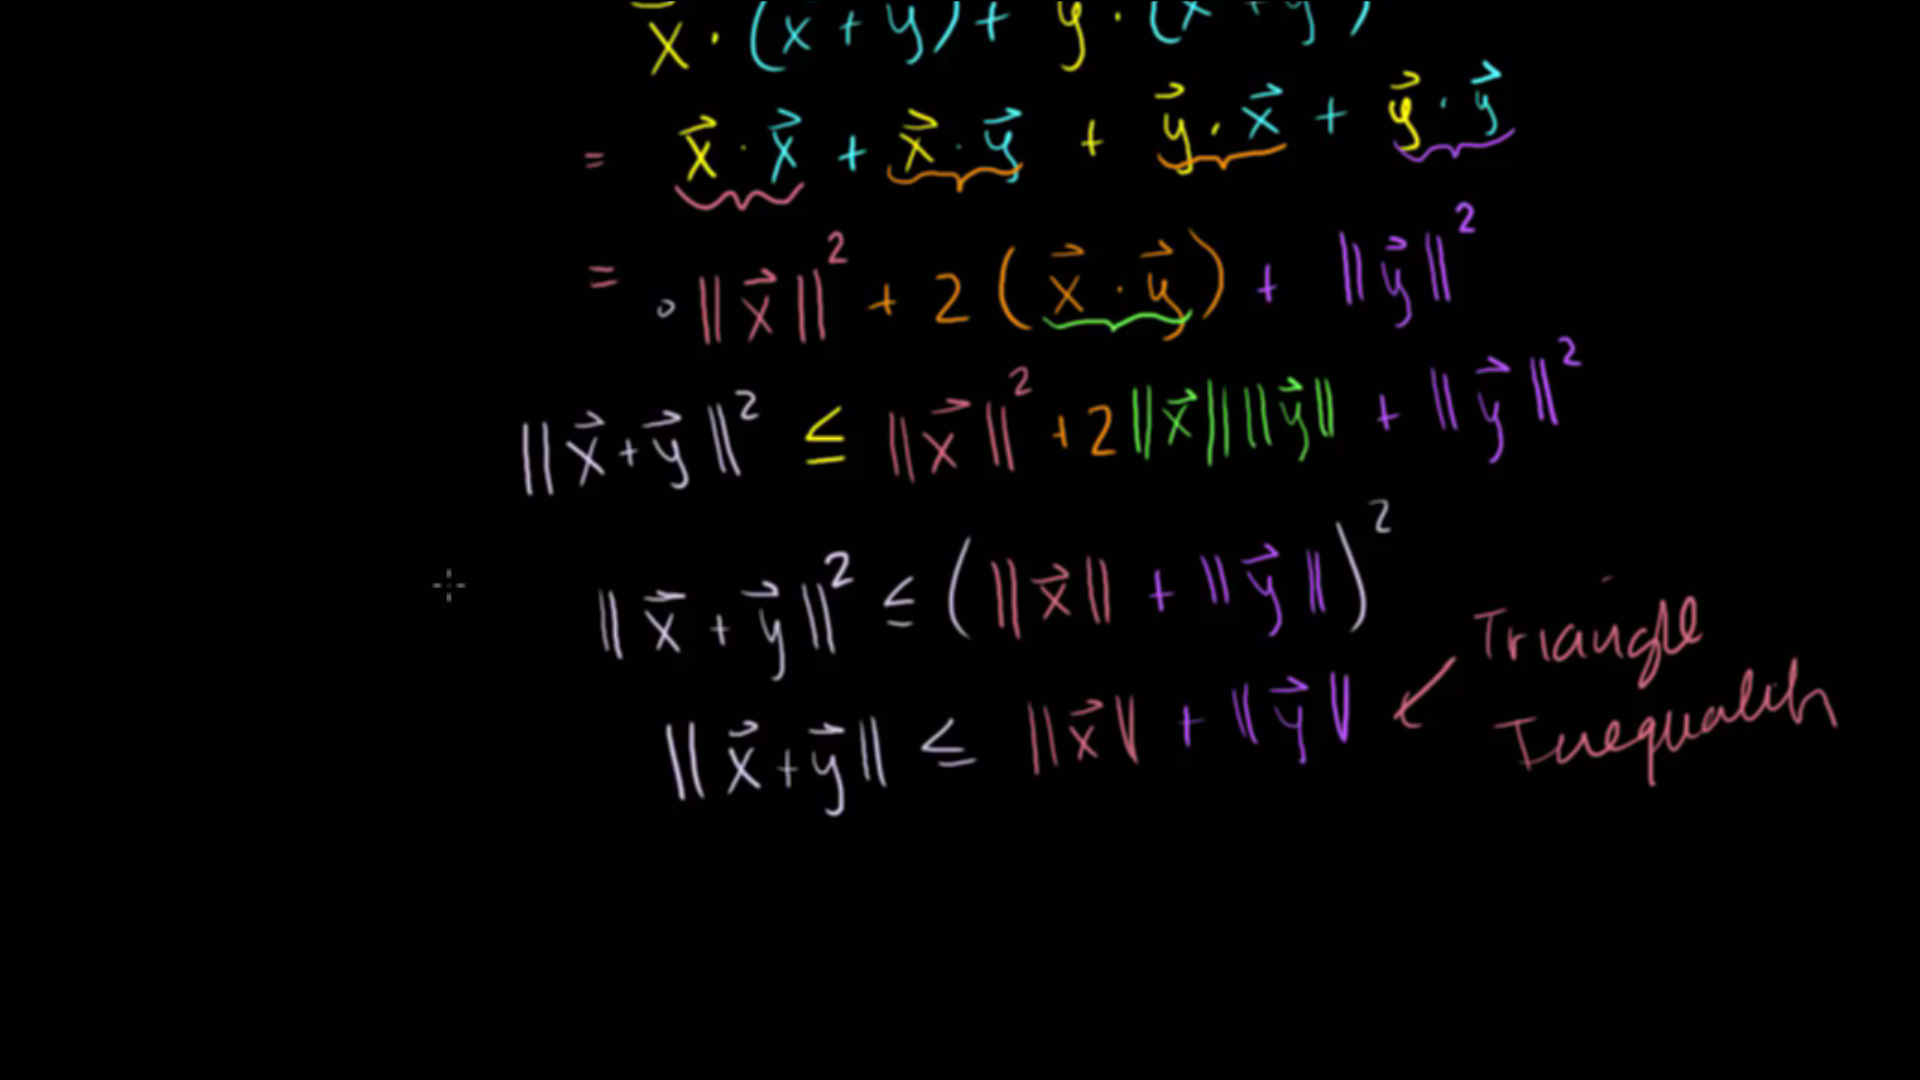 x⃗ · (x + y) + y · (x + y)
= x⃗ · x⃗ + x⃗ · y⃗ + y⃗ · x⃗ + y⃗ · y⃗
= ||x⃗||² + 2 (x⃗ · y⃗) + ||y⃗||²
||x⃗ + y⃗||² ≤ ||x⃗||² + 2 ||x⃗|| ||y⃗|| + ||y⃗||²
||x⃗ + y⃗||² ≤ (||x⃗|| + ||y⃗||)²
||x⃗ + y⃗|| ≤ ||x⃗|| + ||y⃗||
Triangle
Inequality